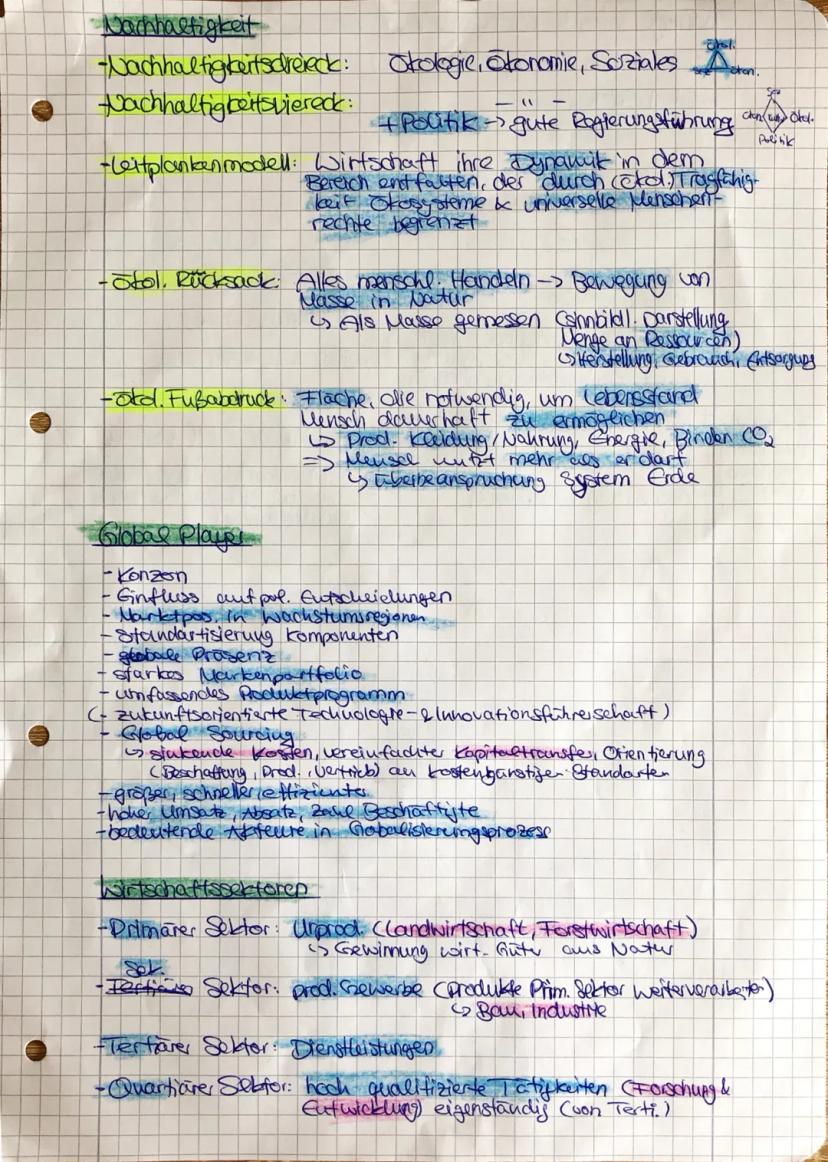 Nachhaltigkeit
- Nachhaltigkeitsdreieck: Ökologie, Ökonomie, Soziales
Ökol.
ökon.
- Nachhaltigkeitsviereck: — " —
+ Politik → gute Regierungsführung
Soz
Ökon Ökol.
Politik
- Leitplankenmodell: Wirtschaft ihre Dynamik in dem
Bereich entfalten, der durch (ökol.) Tragfähig-
keit Ökosysteme & universelle Menschen-
rechte begrenzt
- Ökol. Rucksack: Alles menschl. Handeln → Bewegung von
Masse in Natur
↳ Als Masse gemessen (sinnbildl. Darstellung
Menge an Ressourcen)
↳ Herstellung, Gebrauch, Entsorgung
- Ökol. Fußabdruck: Fläche, die notwendig, um Lebensstand
Mensch dauerhaft zu ermöglichen
↳ Prod. Kleidung/Nahrung, Energie, Binden CO₂
=> Mensch nutzt mehr als er darf
↳ Überbeanspruchung System Erde
Global Player
- Konzern
- Einfluss auf pol. Entscheidungen
- Marktpos. in Wachstumsregionen
- Standartisierung Komponenten
- globale Präsenz
- starkes Markenportfolio
- umfassendes Produktprogramm
(- zukunftsorientierte Technologie- & Innovationsführerschaft)
- Global Sourcing
↳ sinkende Kosten, vereinfachter Kapitaltransfer, Orientierung
(Beschaffung, Prod., Vertrieb) an kostengünstigen Standorten
- größer, schneller, effizienter
- hoher Umsatz, Absatz, Zahl Beschäftigte
- bedeutende Akteure in Globalisierungsprozess
Wirtschaftssektoren
- Primärer Sektor: Urprod. (Landwirtschaft, Forstwirtschaft)
↳ Gewinnung wirt. Güter aus Natur
Sek.
- Tertiärer Sektor: prod. Gewerbe (Produkte Prim. Sektor weiterverarbeiten)
↳ Bau, Industrie
- Tertiärer Sektor: Dienstleistungen
- Quartiärer Sektor: hoch qualifizierte Tätigkeiten (Forschung &
Entwicklung) eigenständig (von Terti.)